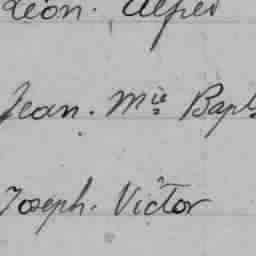 Léon. Alfred
Jean. Mie Bapt
Joseph. Victor